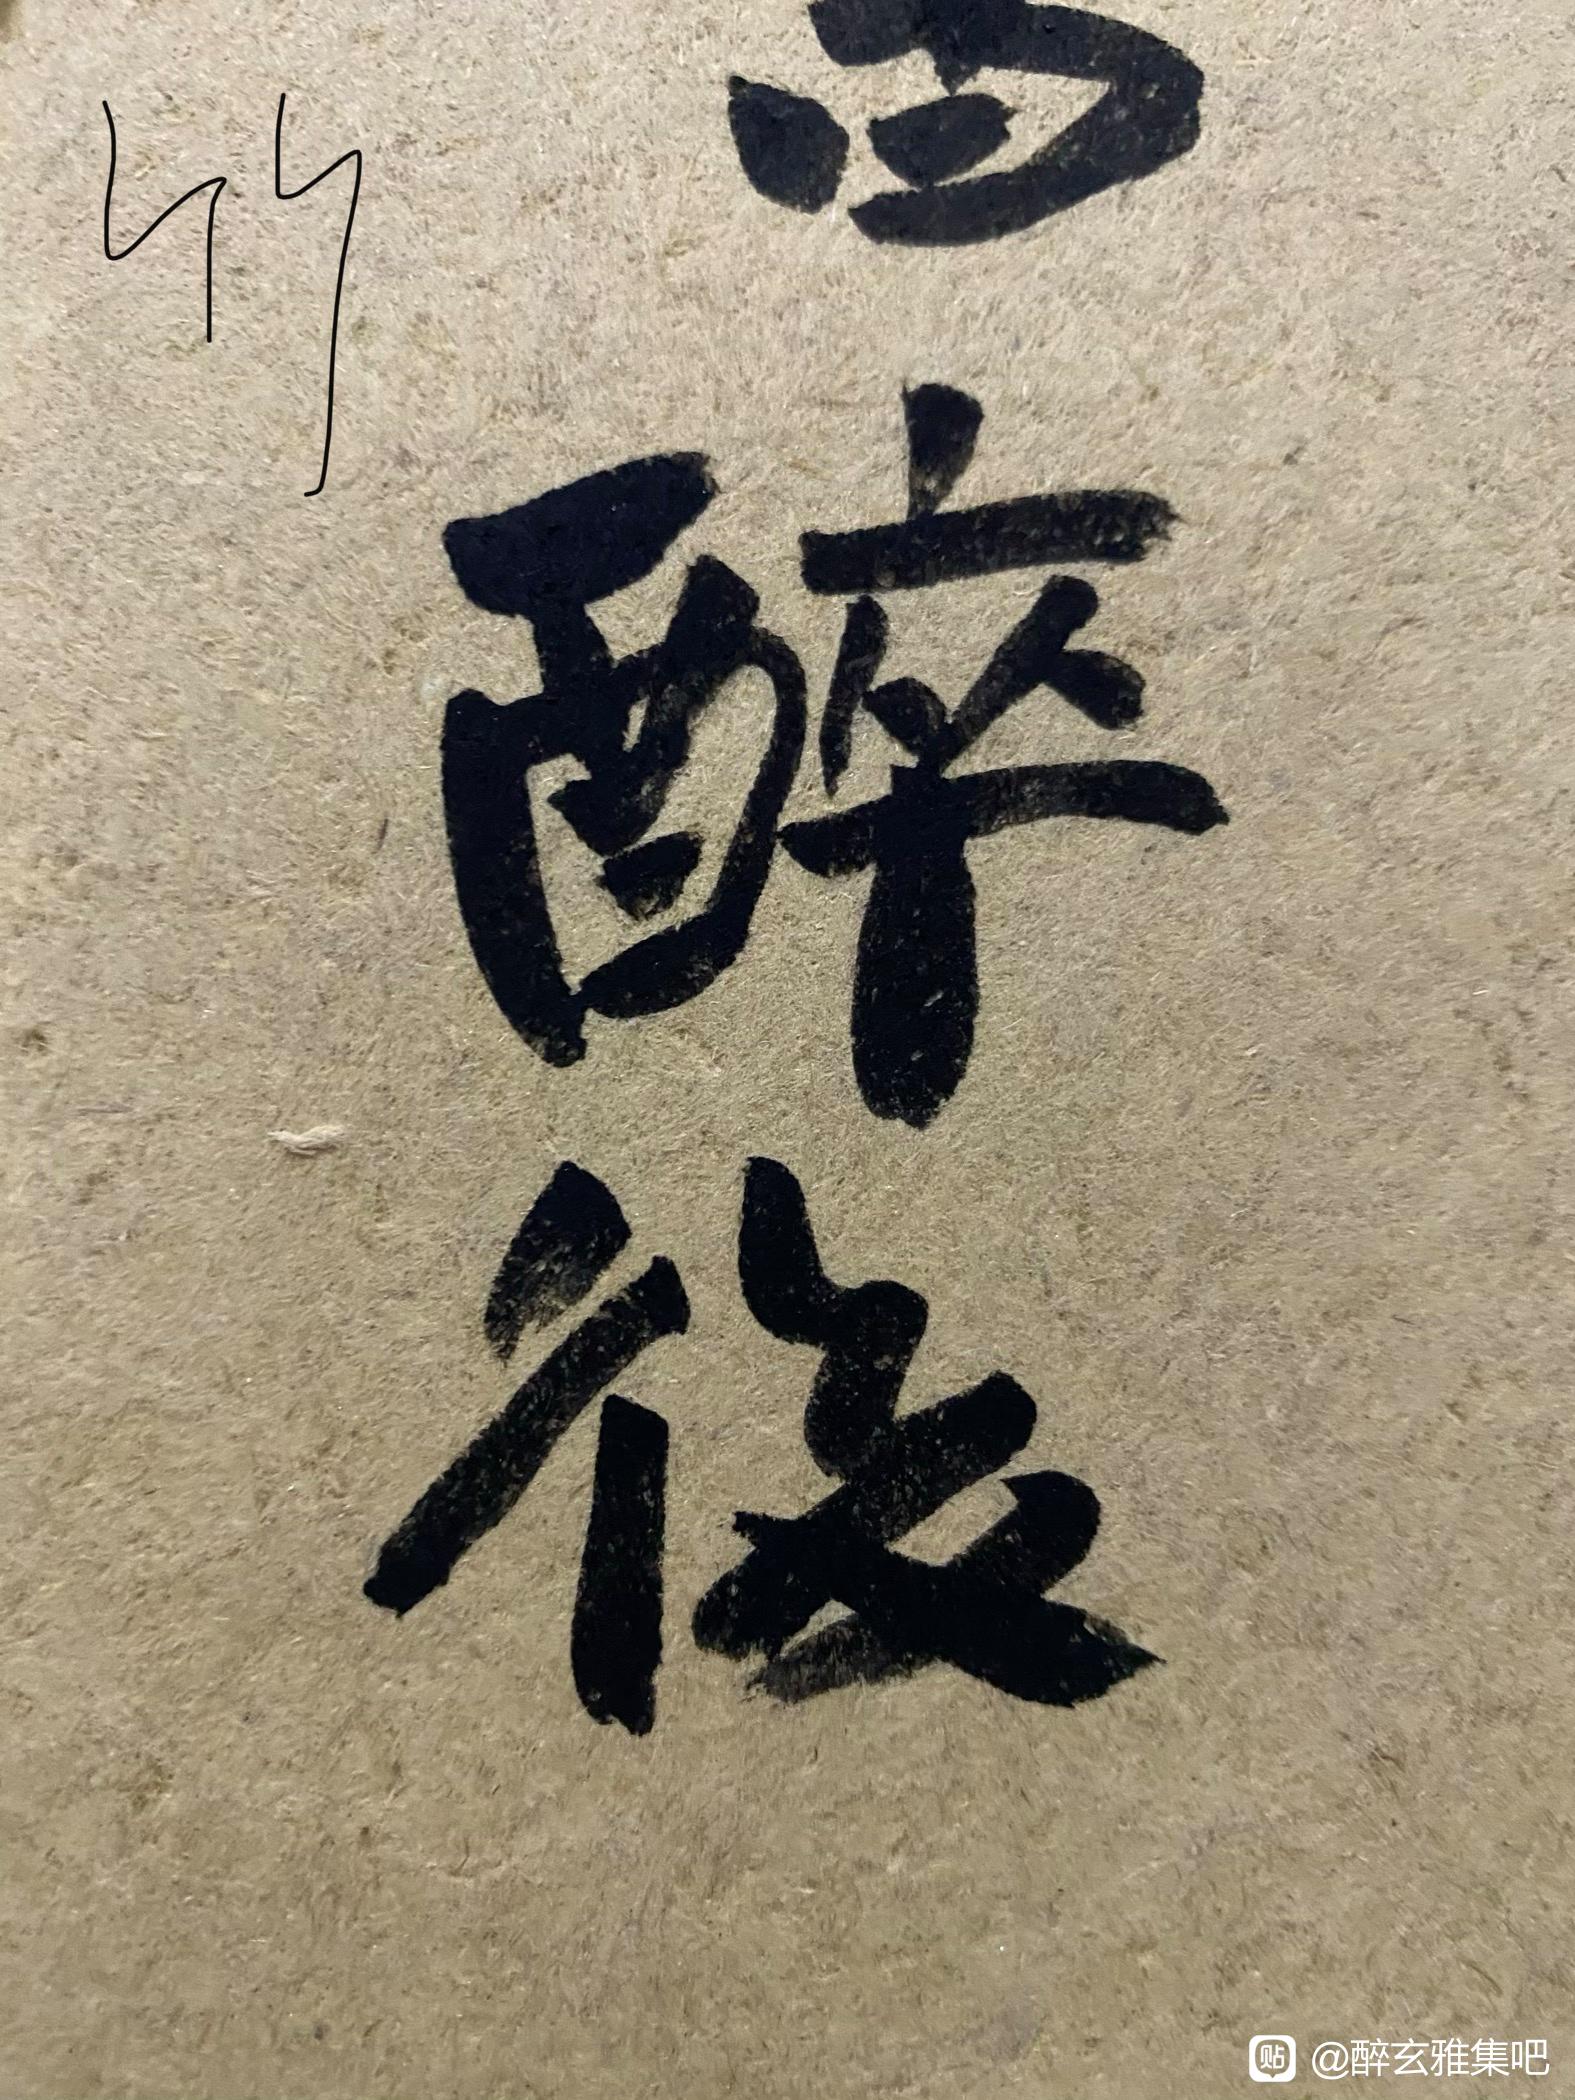 醉後
@醉玄雅集吧